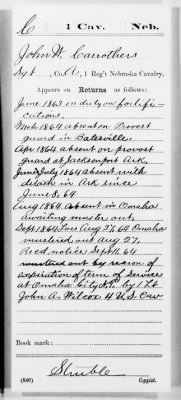 C | 1 Cav. | Neb.
John W. Carothers
Sgt, Co. A, 1 Reg't Nebraska Cavalry.
Appears on Returns as follows:
June 1863 on duty on fortifi-
cations.
Mch 1864 absent on Provost
guard in Batesville
Apr 1864 absent on provost
guard at Jacksonport Ark,
June & July 1864 absent with
detach in Ark since
June 5, 64
Aug 1864 absent in Omaha
awaiting muster out
Sept 1864 Loss Aug 27 64 Omaha
mustered out Aug 27,
Recd notice Sept 11, 64
mustered out by reason of
expiration of term of service
at Omaha City N.T. by 1 Lt
John A. Wilcox 4 U.S. Cav
Book mark:
Struble
(546) Copyist.